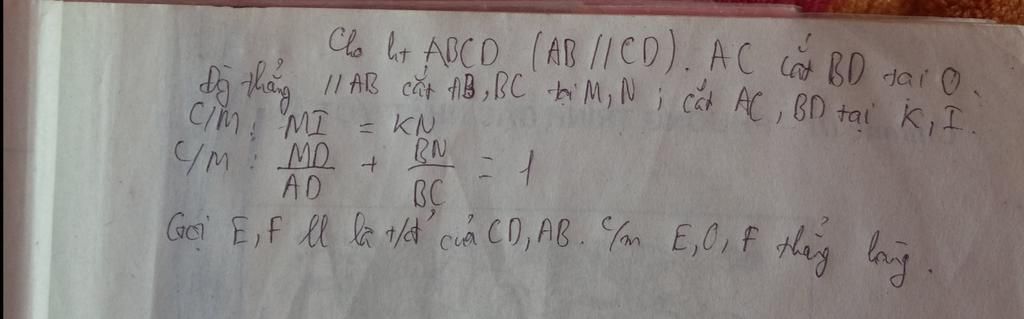 Cho ht ABCD (AB//CD). AC cắt BD tại O.
Đg thẳng //AB cắt AB, BC tại M, N ; cắt AC, BD tại K, I.
C/M : MI = KN
C/M : MD/AD + BN/BC = 1
Gọi E, F ll là t/đ' của CD, AB. c/m E, O, F thẳng hàng.